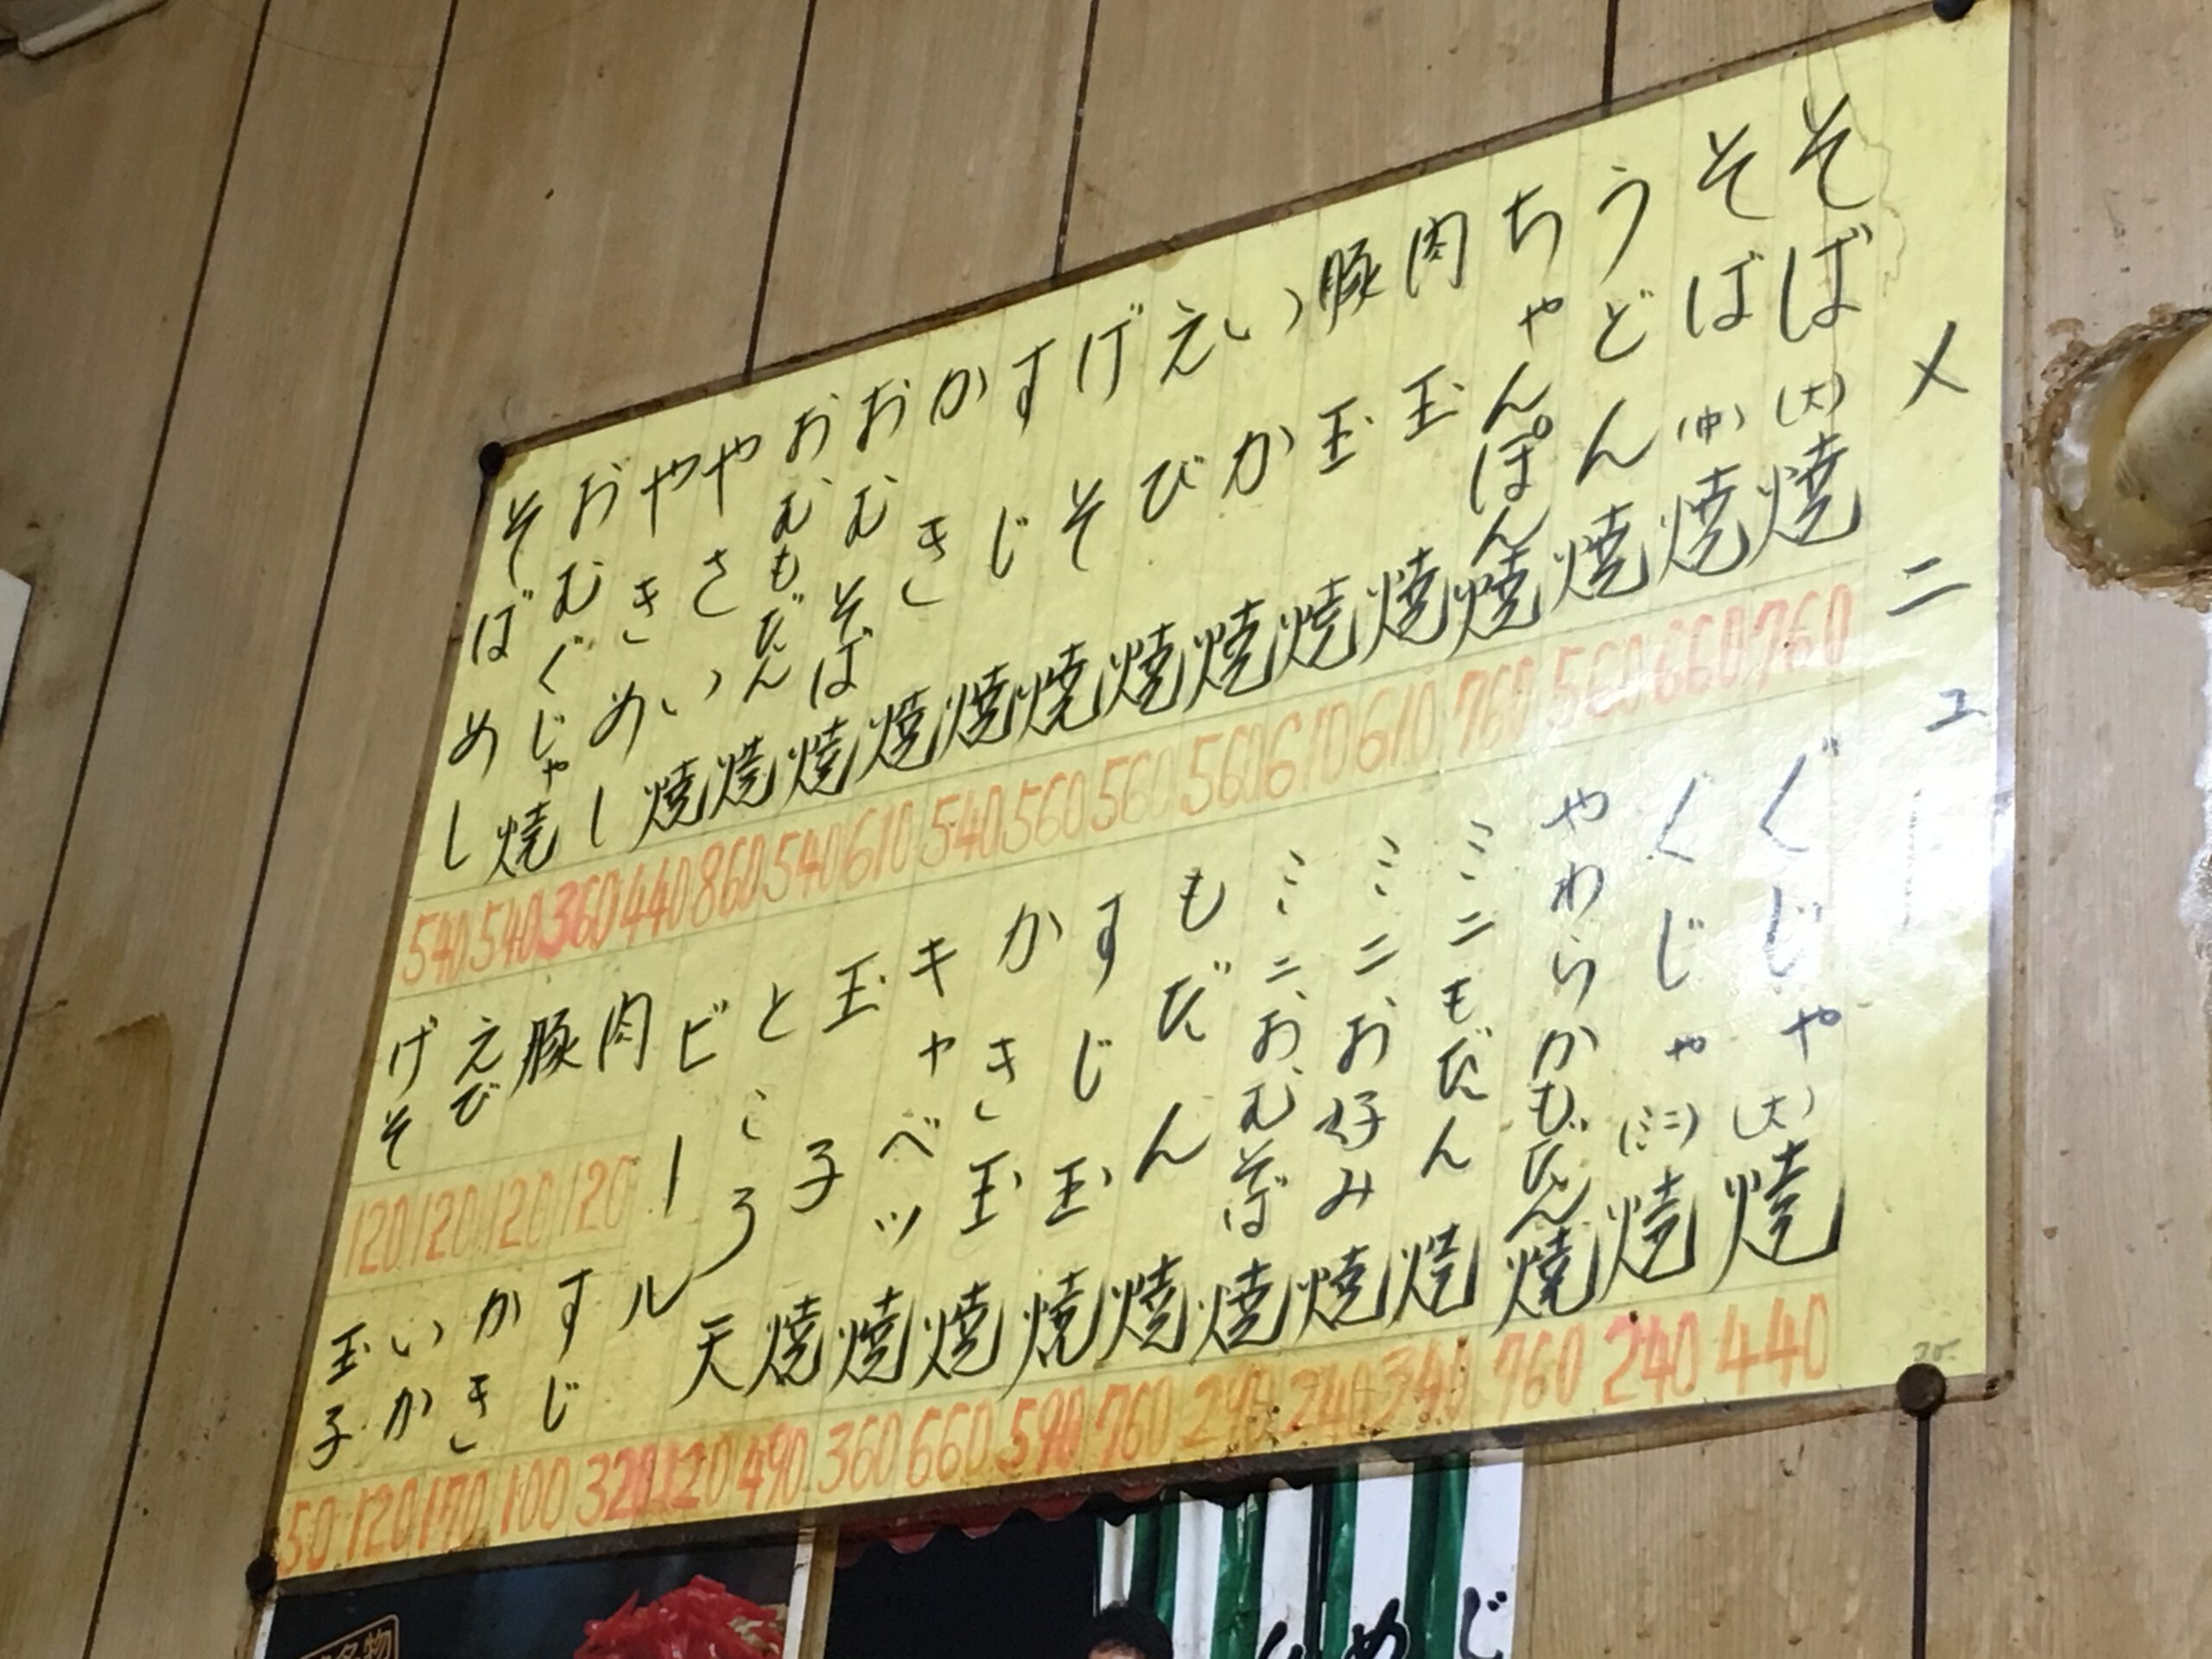 メニュー
そば(大)焼 760
そば(中)焼 660
うどん焼 560
ちゃんぽん焼 760
肉玉焼 610
豚玉焼 610
いか焼 560
えび焼 560
げそ焼 560
すじ焼 540
かき焼 610
おむそば焼 540
おむもだん焼 860
やさい焼 440
やきめし 360
おむぐじゃ焼 540
そばめし 540
ぐじゃ(大)焼 440
ぐじゃ(ミニ)焼 240
やわらかもだん焼 760
ミニモだん焼 340
ミニお好み焼 240
ミニおむそば焼 290
もだん焼 760
すじ玉焼 590
かき玉焼 660
キャベツ焼 360
玉子焼 490
ところ天 120
ビール 320
肉 120
豚 120
えび 120
げそ 120
すじ 100
かき 170
いか 120
玉子 50
名物